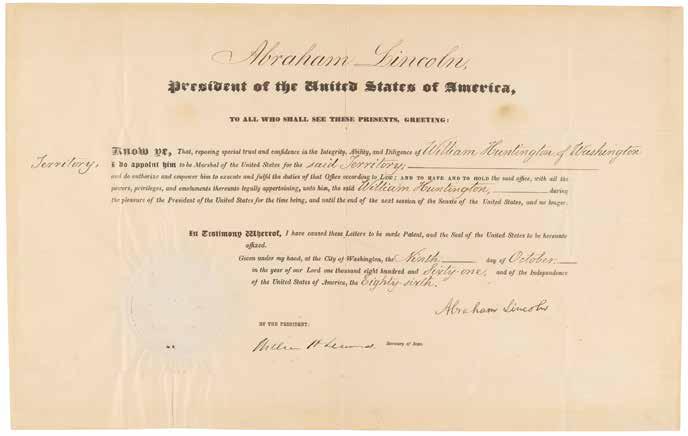 Abraham Lincoln,
President of the United States of America,
TO ALL WHO SHALL SEE THESE PRESENTS, GREETING:
Know ye, That, reposing special trust and confidence in the Integrity, Ability, and Diligence of William Huntington of Washington
Territory, I do appoint him to be Marshal of the United States for the said Territory,
and do authorize and empower him to execute and fulfil the duties of that Office according to Law; AND TO HAVE AND TO HOLD the said office, with all the
powers, privileges, and emoluments thereunto legally appertaining, unto him, the said William Huntington, during
the pleasure of the President of the United States for the time being, and until the end of the next session of the Senate of the United States, and no longer.
In Testimony Whereof, I have caused these Letters to be made Patent, and the Seal of the United States to be hereunto
affixed.
Given under my hand, at the City of Washington, the Ninth day of October
in the year of our Lord one thousand eight hundred and Sixty-one, and of the Independence
of the United States of America, the Eighty-sixth.
Abraham Lincoln
BY THE PRESIDENT:
William H Seward Secretary of State.